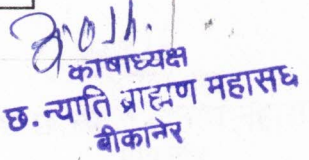 काषाध्यक्ष
छ. न्याति ब्राह्मण महासघ
बीकानेर